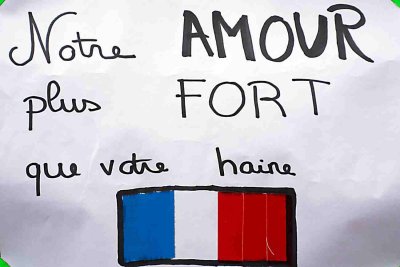 Notre AMOUR
plus FORT
que votre haine